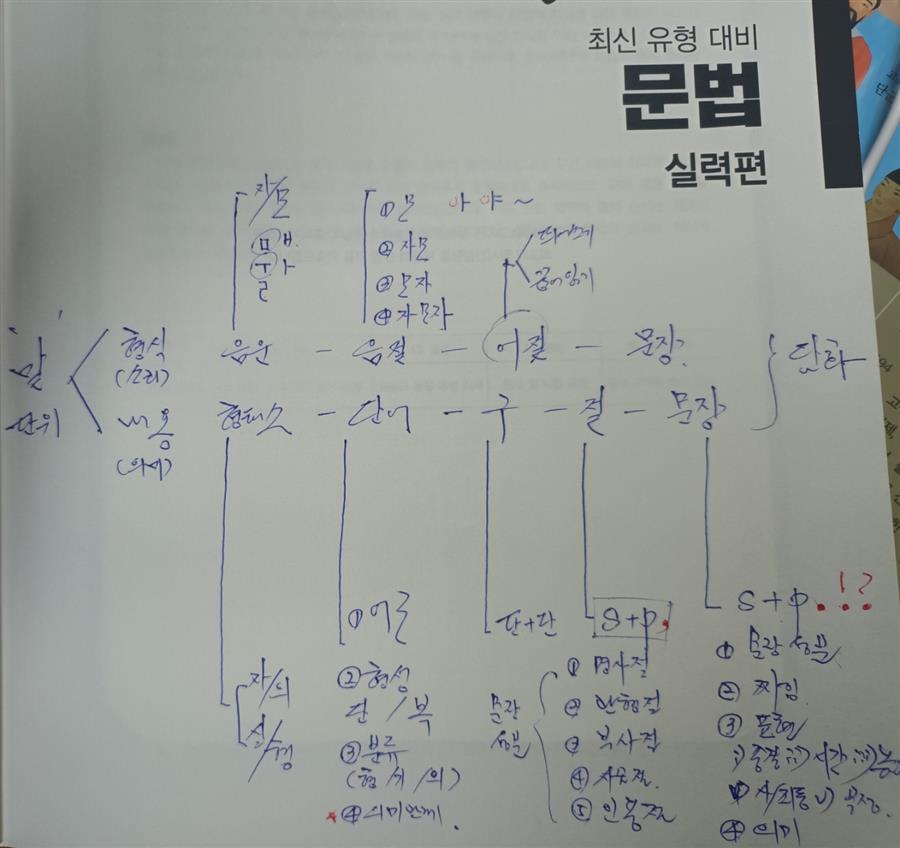 최신 유형 대비
문법
실력편
자/모
ㅁ ㅂ
ㅜ ㅏ
ㄹ
①모 아 야 ~
②자모
③모자
④자모자
띄어쓰기
끊어읽기
"말"
단위
형식
(소리)
음운 - 음절 - 어절 - 문장
내용
(의미)
형태소 - 단어 - 구 - 절 - 문장
담화
자/의
실/형
①어근
②형성
단/복
③분류
(형/기/의)
④의미관계
단+단
S+P.
문장
성분
① 명사절
② 관형절
③ 부사절
④ 서술절
⑤ 인용절
S+P . ! ?
① 문장 성분
② 짜임
③ 표현
i) 종결 ii) 시간 iii) 높
iv) 사/피동 v) 부정
④ 의미